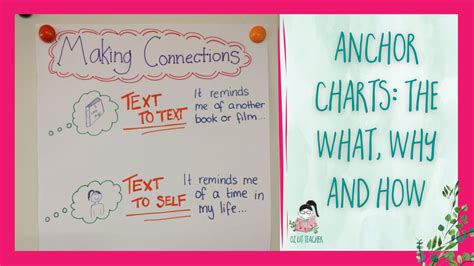 Making Connections
TEXT
TO TEXT
It reminds
me of another
book or film...
TEXT
TO SELF
It reminds me
of a time in
my life...
ANCHOR
CHARTS: THE
WHAT, WHY
AND HOW
OZ LIT TEACHER